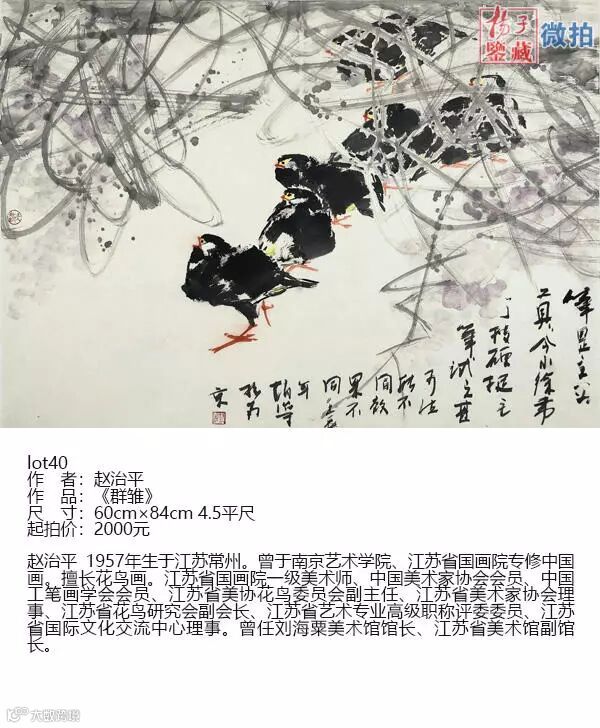 揚子
鑒藏
微拍
lot40
作 者：赵治平
作 品：《群雏》
尺 寸：60cm×84cm 4.5平尺
起拍价：2000元
赵治平 1957年生于江苏常州。曾于南京艺术学院、江苏省国画院专修中国
画。擅长花鸟画。江苏省国画院一级美术师、中国美术家协会会员、中国
工笔画学会会员、江苏省美协花鸟委员会副主任、江苏省美术家协会理
事、江苏省花鸟研究会副会长、江苏省艺术专业高级职称评委委员、江苏
省国际文化交流中心理事。曾任刘海粟美术馆馆长、江苏省美术馆副馆
长。
大数跨境